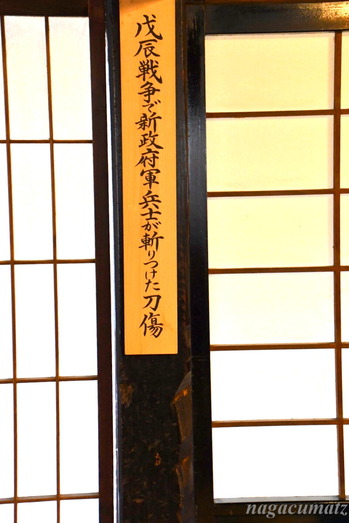 戊辰戦争で新政府軍兵士が斬りつけた刀傷
nagacumatz